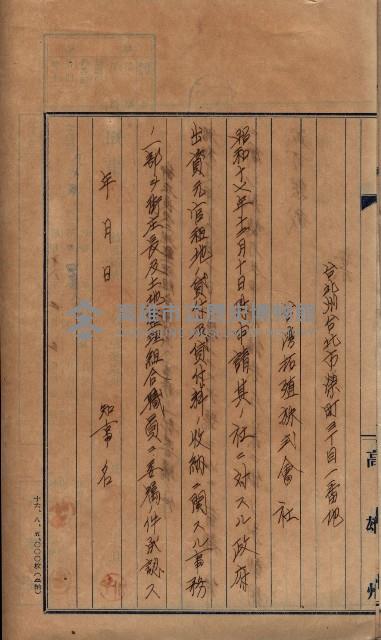 台北州台北市榮町三丁目一番地
台湾拓殖株式會社
昭和十六年十二月十日附申請其ノ社ニ対スル政府
出資元官租地ノ貸付及貸付料ノ收納ニ関スル事務
ノ一部ヲ街庄長及土地整理組合職員ニ委嘱ノ件承認ス
年 月 日
知事名
高雄州
十六、八、五、〇〇〇枚
高雄市立歷史博物館